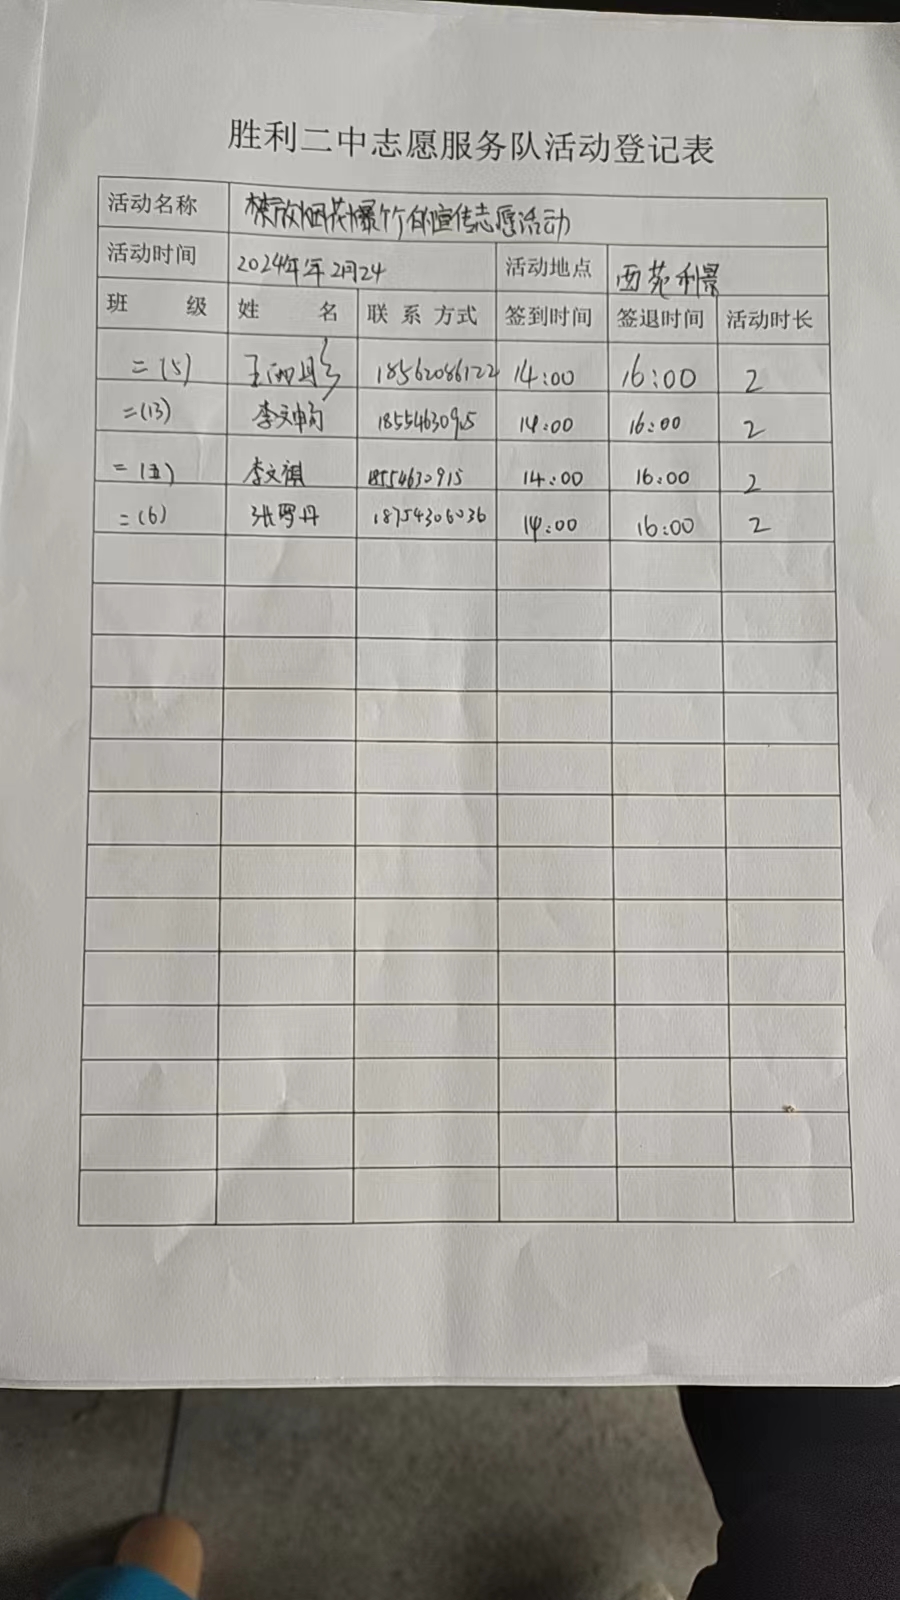 胜利二中志愿服务队活动登记表
活动名称 禁放烟花爆竹的宣传志愿活动
活动时间 2024年年2月24 活动地点 西苑利景
班 级 姓 名 联 系 方式 签到时间 签退时间 活动时长
二(5) 王 18562086122 14:00 16:00 2
二(13) 李文 18554630915 14:00 16:00 2
二(五) 李文祺 18554630915 14:00 16:00 2
二(6) 张罗丹 18754306036 14:00 16:00 2